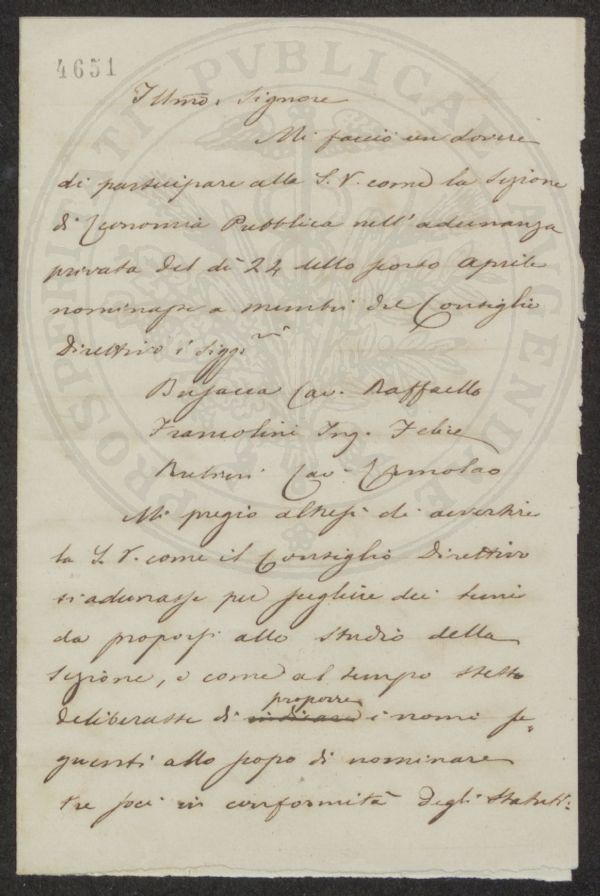 4651
Illmo. Signore
Mi faccio un dovere
di participare alla S. V. come la Sezione
di Economia Pubblica nell' adunanza
privata del dì 24 dello scorso Aprile
nominasse a membri del Consiglio
Direttivo i Siggri
Busacca Cav. Raffaello
Francolini Ing. Felice
Rubieri Cav. Ermolao
Mi pregio altresì di avvertire
la S. V. come il Consiglio Direttivo
si adunasse per scegliere dei temi
da proporsi allo studio della
Sezione, e come al tempo stesso
proporre
deliberasse di indicare i nomi se=
guenti allo scopo di nominare
tre soci in conformità degli Statuti:
PROSPERITATI PVBLICAE AVGENDAE